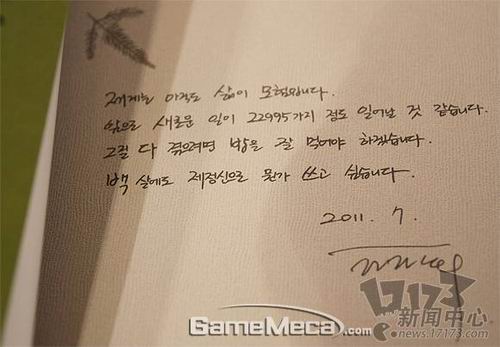 저에게는 아직도 삶이 모험입니다.
앞으로 새로운 일이 22995가지 정도 일어날 것 같습니다.
그걸 다 겪으려면 밥을 잘 먹어야 하겠습니다.
백 살에도 제정신으로 뭔가 쓰고 싶습니다.
2011. 7.
GameMeca.com
17173
新闻中心
news.17173.com